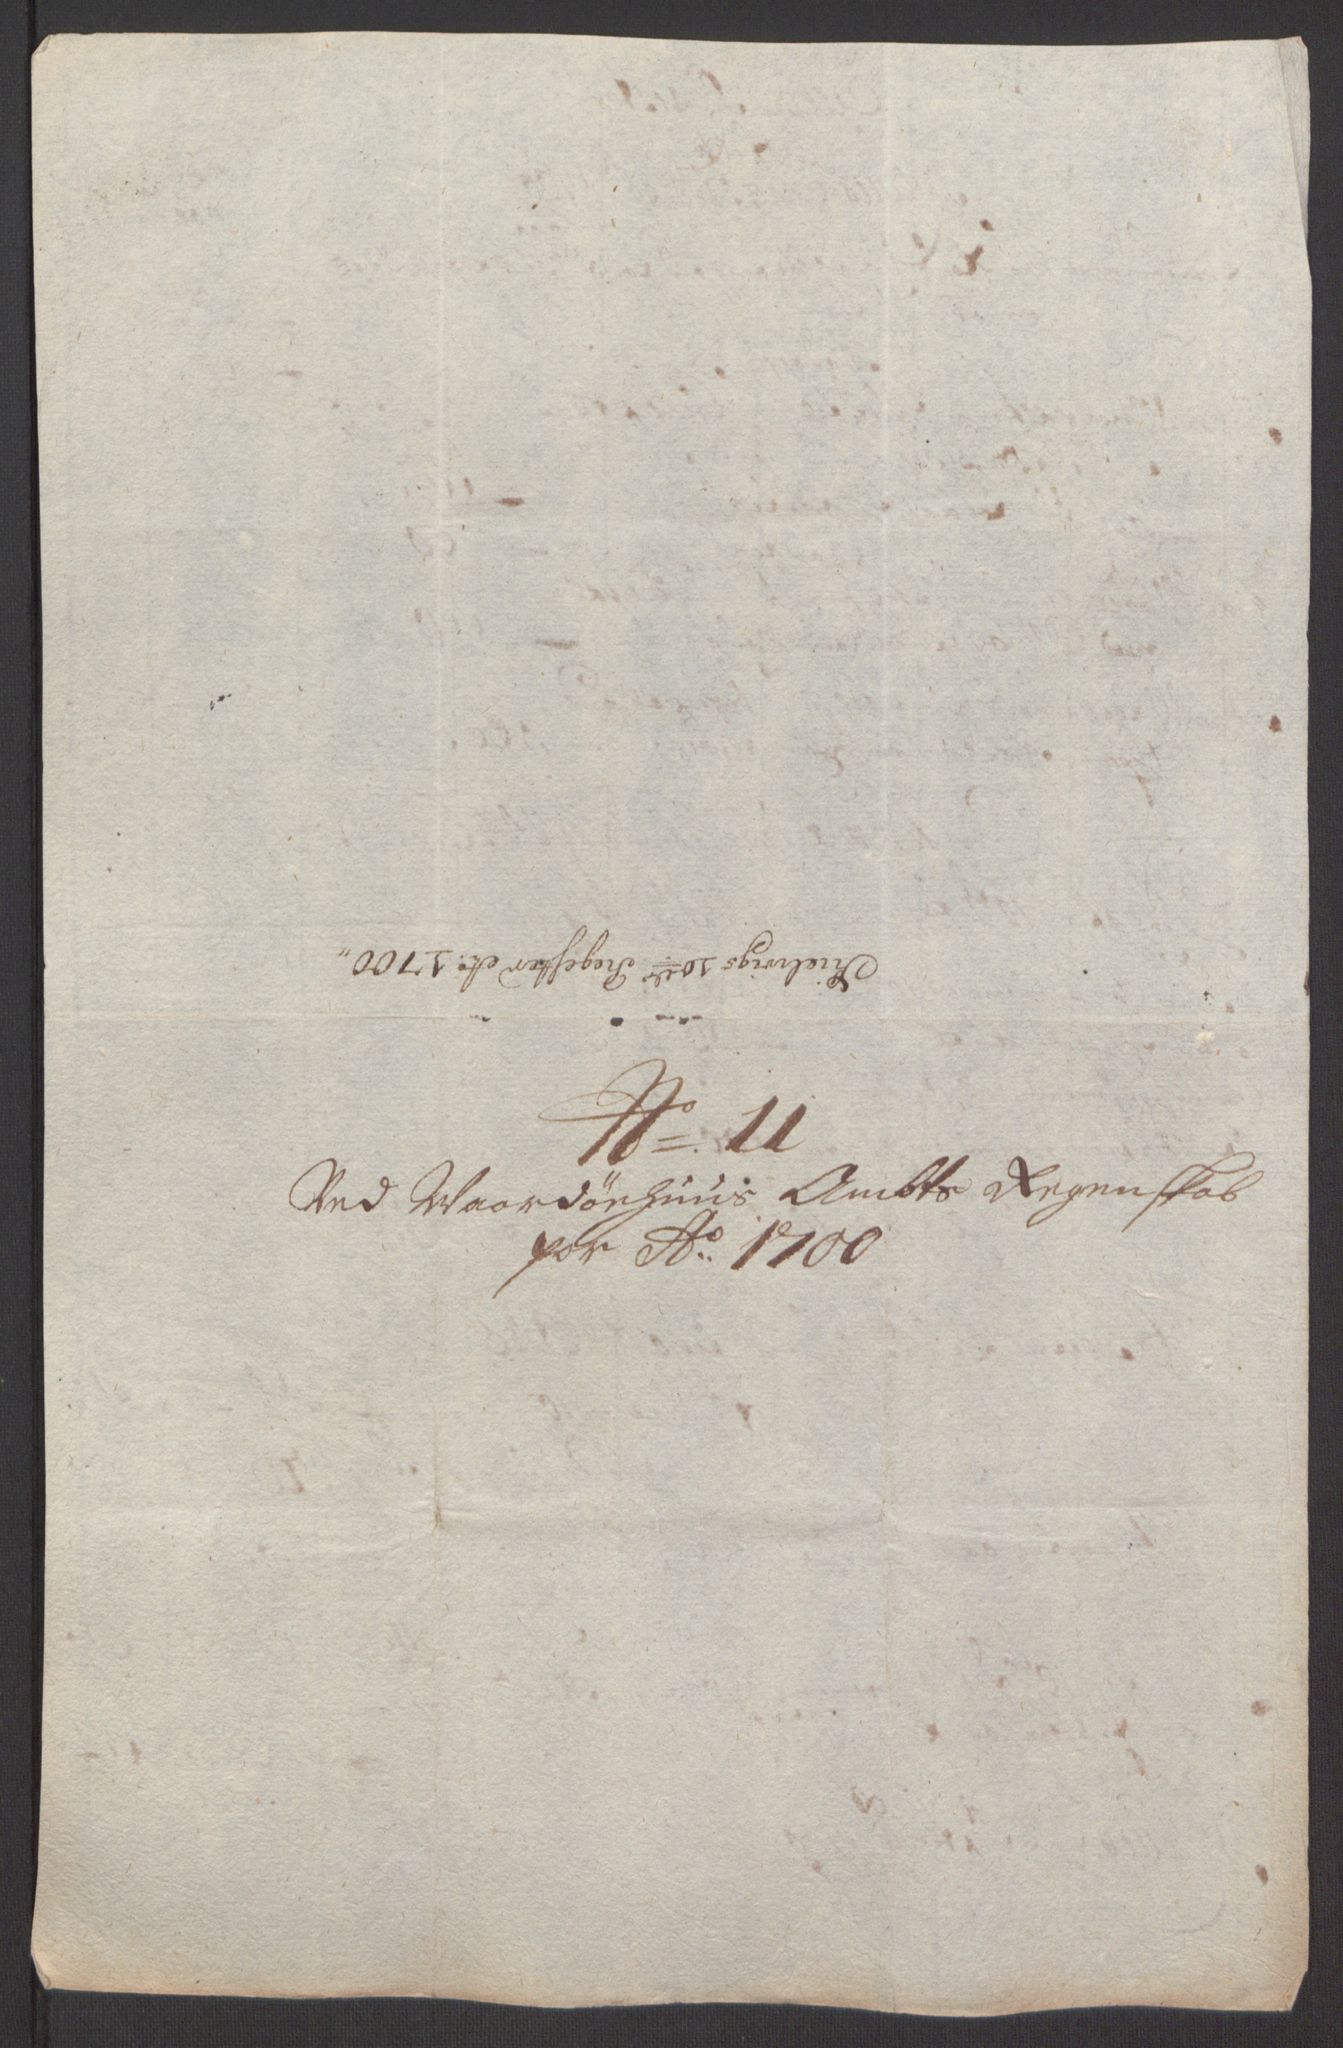 Kielvigs 10de Register Ao: 1700„
No = 11
Ved Waardöehuus Ambts Regenskab
por Ao: 1700